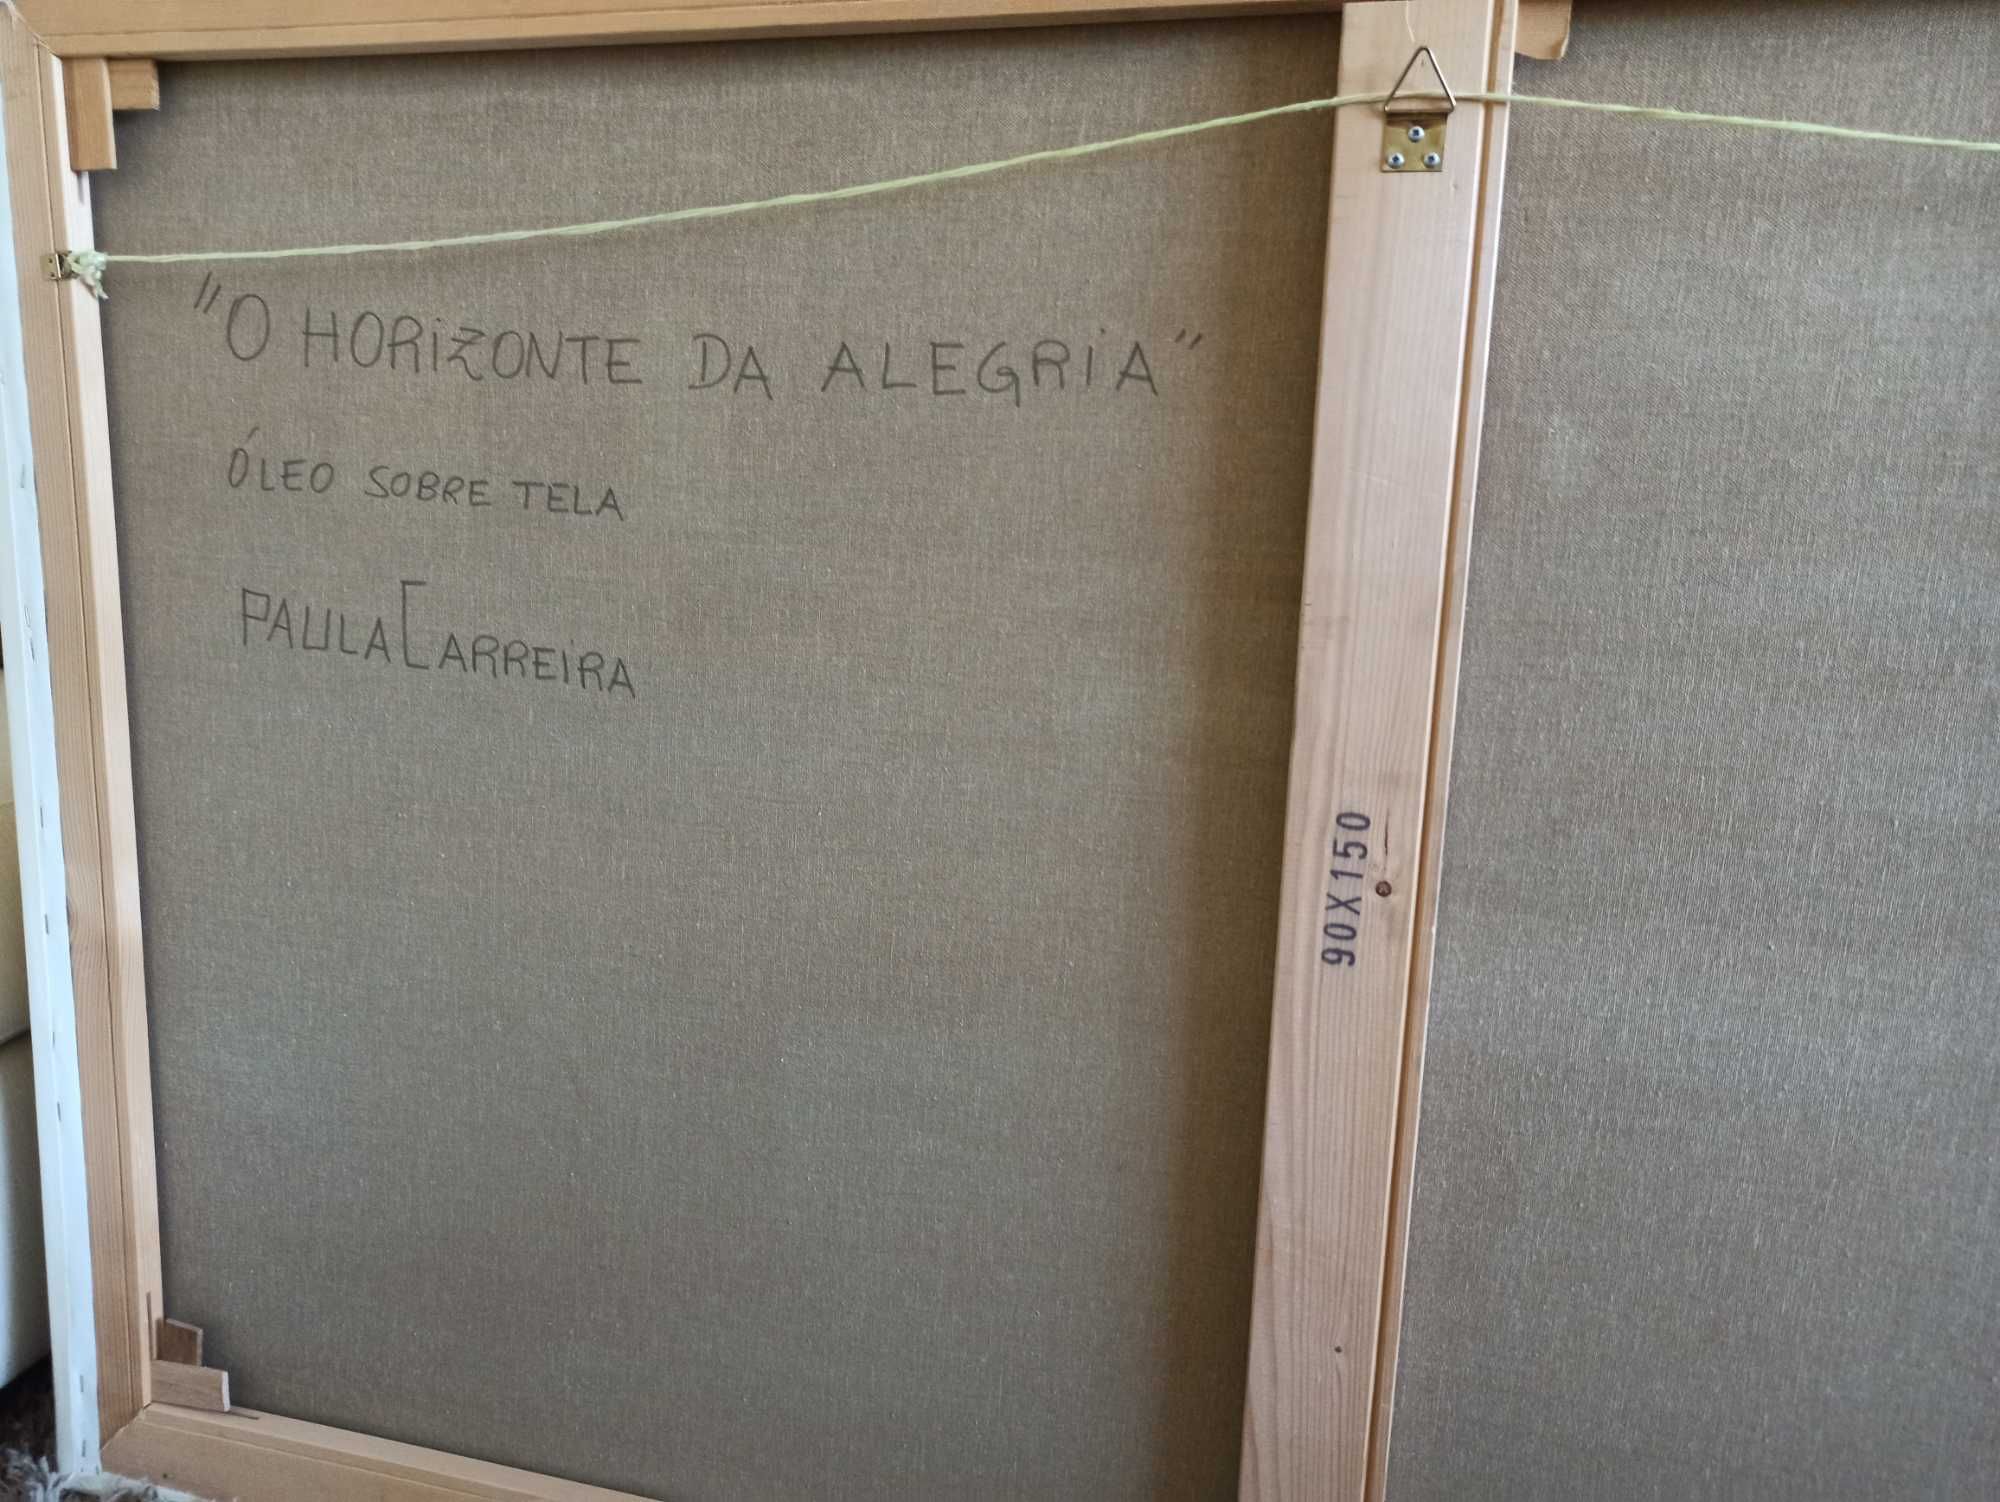 "O HORiZONTE DA ALEGRiA"
ÓLEO SOBRE TELA
PAULA CARREiRA
90X150